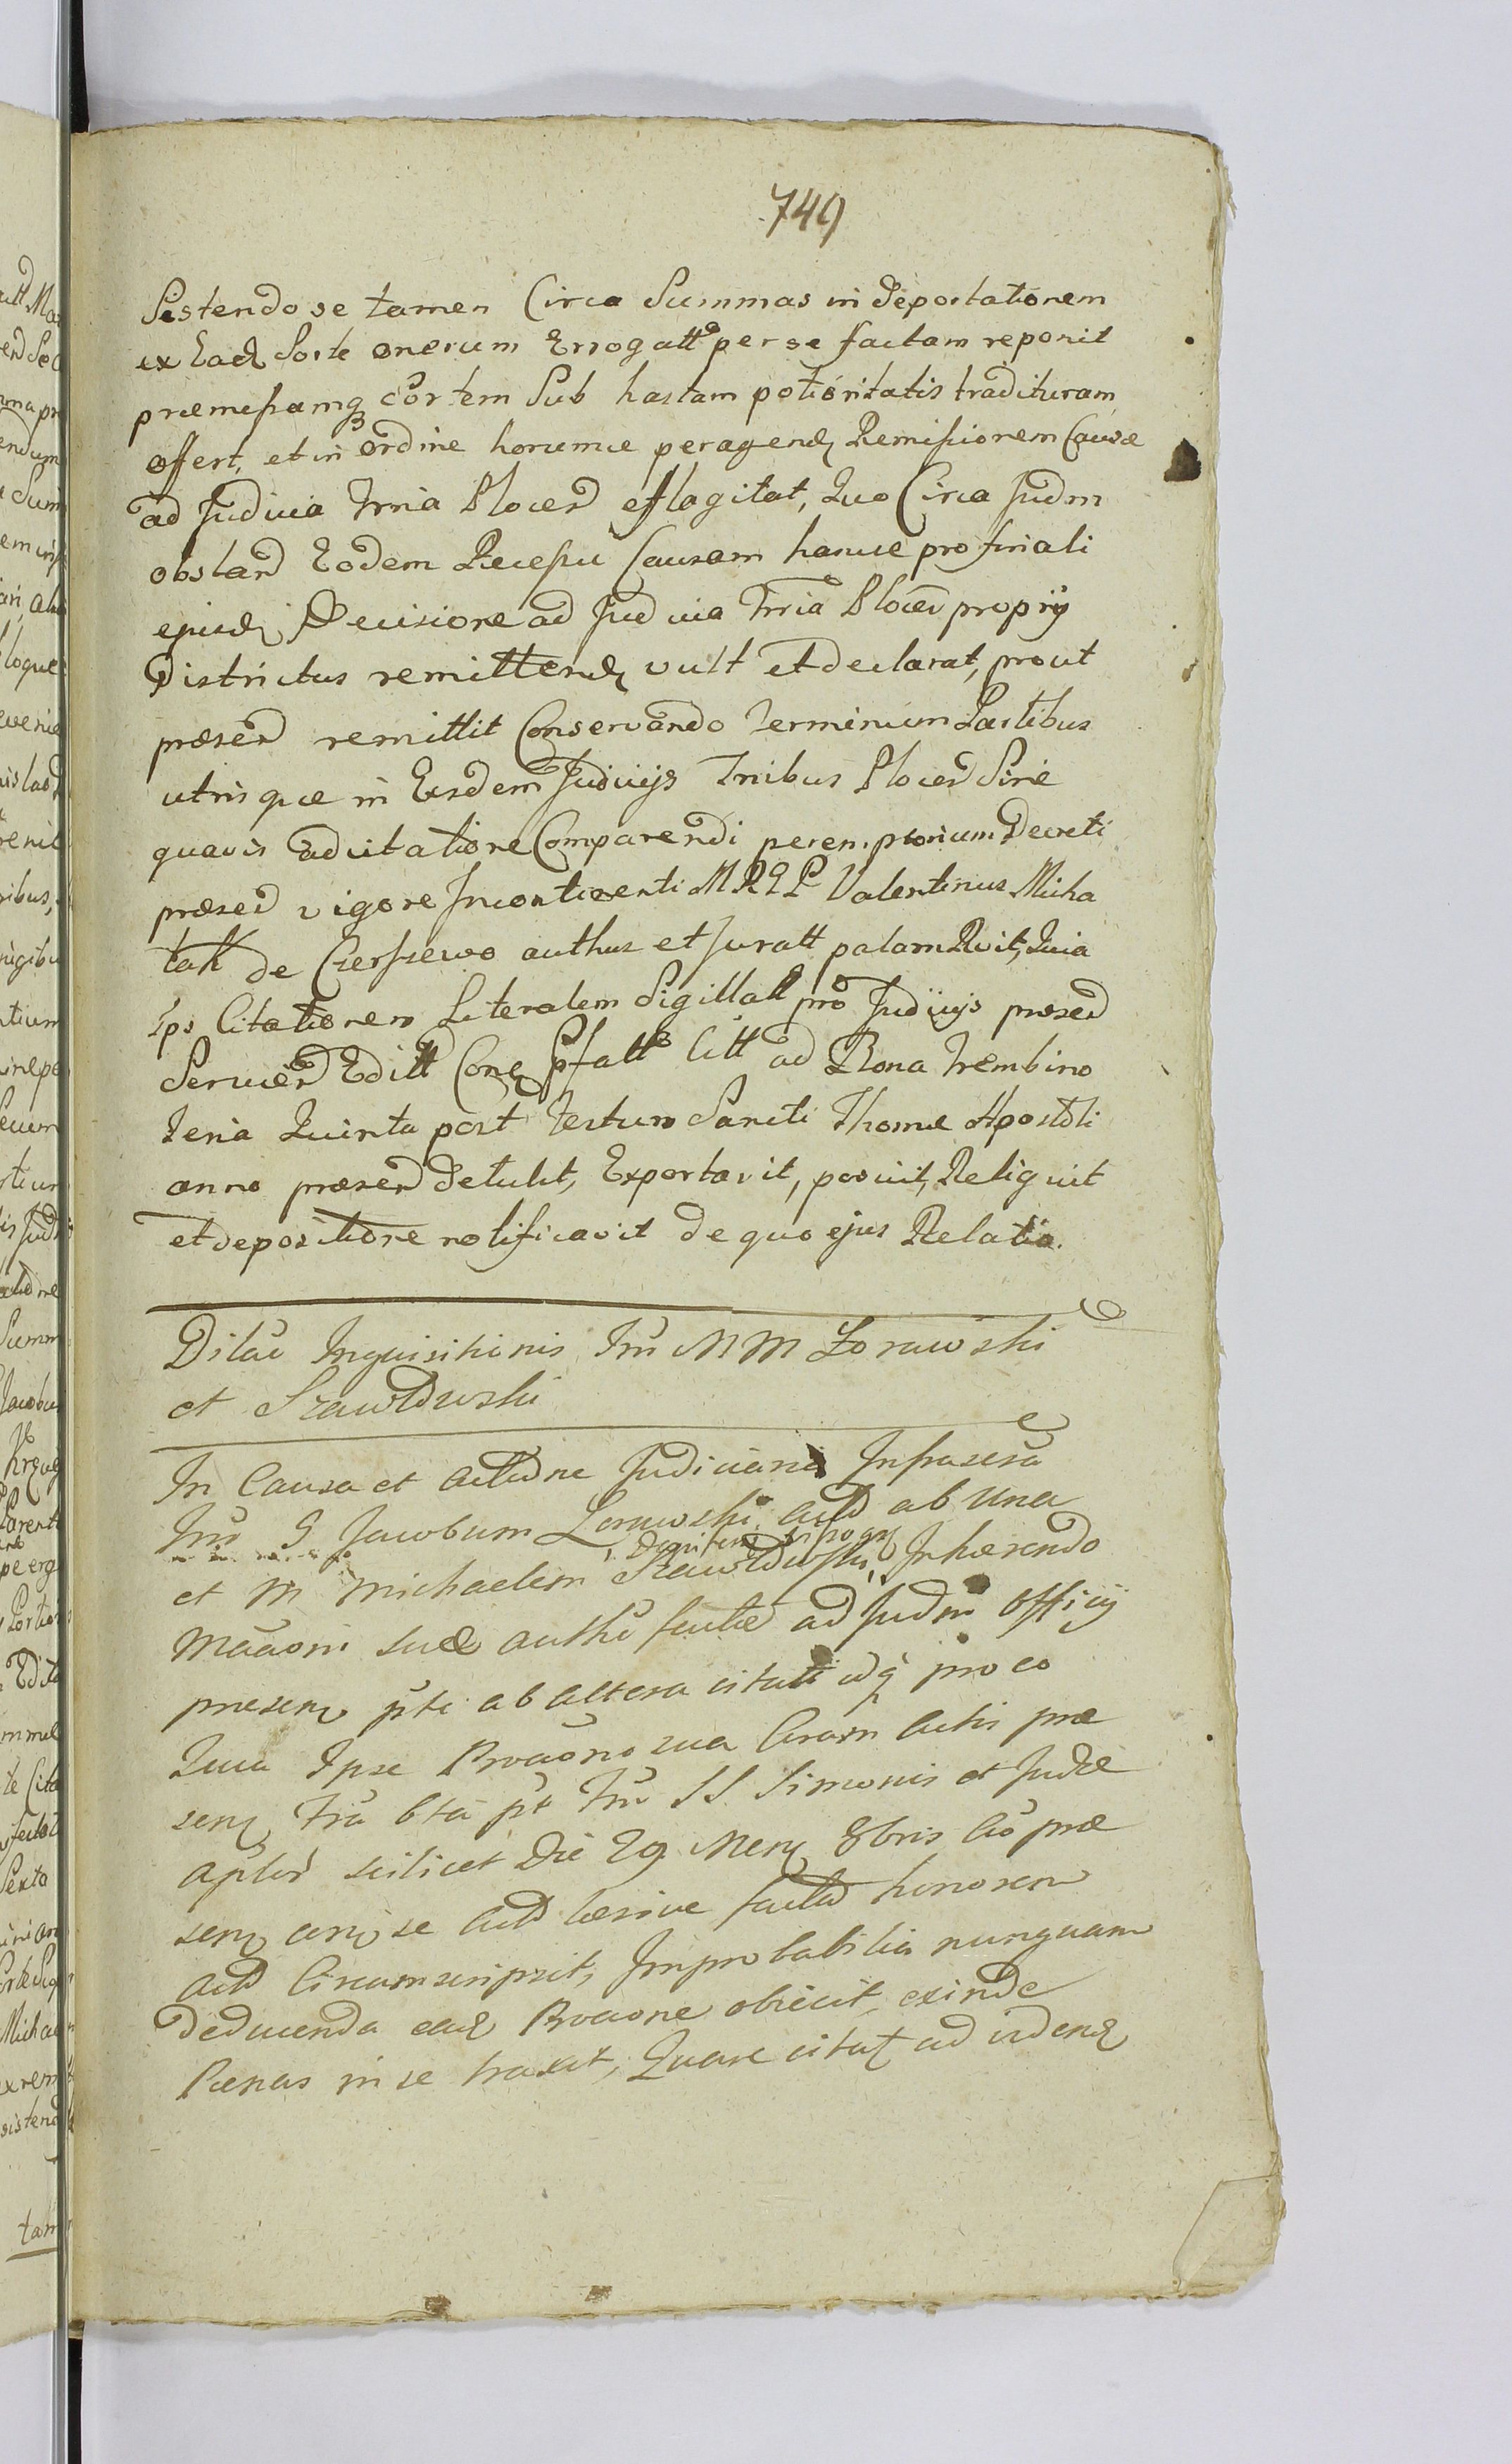 749
Sistendo se tamen Circa Summas in deportationem
ex Ead Sorte onerum Errogatt per se factam reponit
præmissamq sortem Sub hastam potioritatis tradituram
offert, et in ordine horumce peragend Remissionem Causæ
ad Judicia Trria Plocen efflagitat, Quo Circa Judm
obstan Eodem Recessu Causam hancce pro finali
ejusd Decisione ad Judicia Trria Plocen proprij
Districtus remittend vult et declarat, prout
præsen remittit Conservando Terminum Partibus
utrisque in Eisdem Judicijs Tribus Plocen Sine
quavis adcitatione Comparendi peremptorium Decreti
præsen vigore Incontinenti M R G P Valentinus Micha
lak de Cierszewo authus et Juratt palam Rvit, Quia
Ips Citationem Literalem Sigillatt pro Judicijs præsen
Servien Editt Con Psatt Citt ad Bona Trembino
Feria Quinta post Festum Sancti Thomæ Apostoli
anno præsen detulit, Exportavit, posuit, Reliquit
et depositione notificavit de quo ejus Relatio.
Dilao Inquisitionis Inr MM Zorawski
et Szawłowski
In Causa et actione Judiciaria Infrascra
Inr G Jacobum Zorawski act ab una
et M Michaelem Szawłowski, Inhærendo
Maaoni suæ authu factæ ad Judm Officij
præsen pti ab altera citatt idq pro eo
Quia Ipse Prvaone sua Coram Actis præ
sen Fria 6ta pt Fm SS Simonis et Judæ
Aplor scilicet Die 29 Men 8bris Ao præ
sen con se act læsive factâ honorem
act Circumscripsit, Improbabilia nunquam
deducenda ead Prvaone obiecit, exinde
Pænas in se traxit, Quare citat ad viden